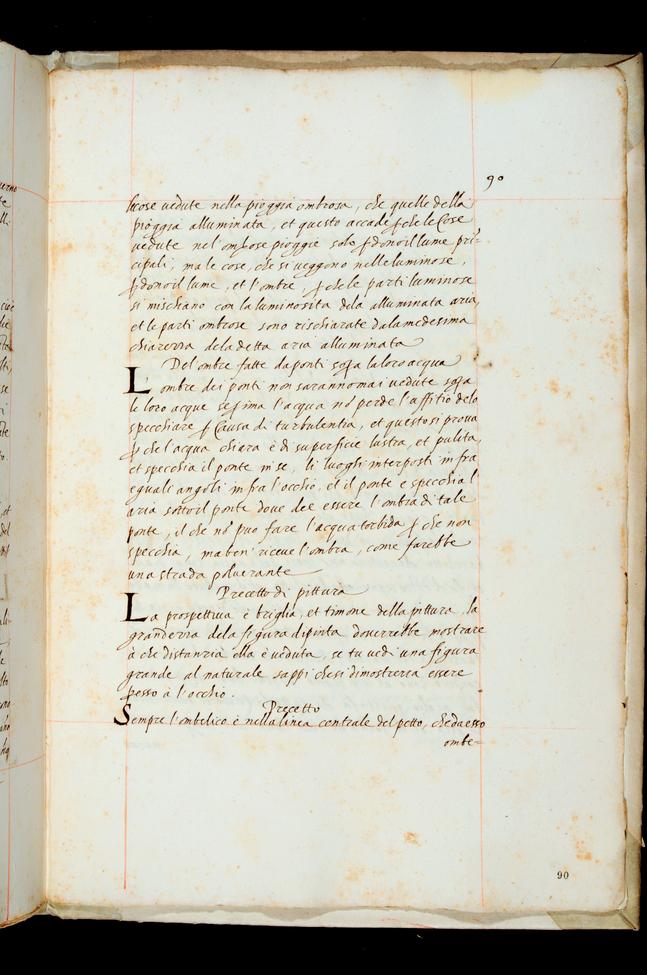 90
le cose vedute nella pioggia ombrosa, che quelle della
pioggia alluminata, et questo accade p che le Cose
vedute nel' ombrose pioggie solo pdono il lume pri=
cipali, ma le cose, che si veggono nelle luminose,
pdono il lume, et l'ombre, p che le parti luminose
si mischiano con la luminosita dela alluminata aria,
et le parti ombrose sono rischiarate dala medesima
chiarezza dela detta aria alluminata
Del'ombre fatte da ponti sopa la loro acqua
L'ombre dei ponti non saranno mai vedute sopa
le loro acque se pima l'acqua nō perde l'affitio delo
specchiare p Causa di turbulentia, et questo si prova
p che l'acqua chiara è di superficie lustra, et pulita,
et specchia il ponte in se, li luoghi interposti in fra
eguali angoli in fra l'occhio, et il ponte e specchia l'
aria sotto il ponte dove dee essere l'ombra di tale
ponte, il che nō puo fare l'acqua torbida p che non
specchia, ma ben' riceve l'ombra, come farebbe
una strada polverante
Precetto di pittura
La prospettiva è briglia, et timone della pittura, la
grandezza dela figura dipinta doverrebbe mostrare
à che distanzia ella è veduta, se tu vedi una figura
grande al naturale sappi che si dimosterra essere
pesso à l'occhio.
Precetto
Sempre l'ombelico è nella linea centrale del petto, che da esso
ombe=
90